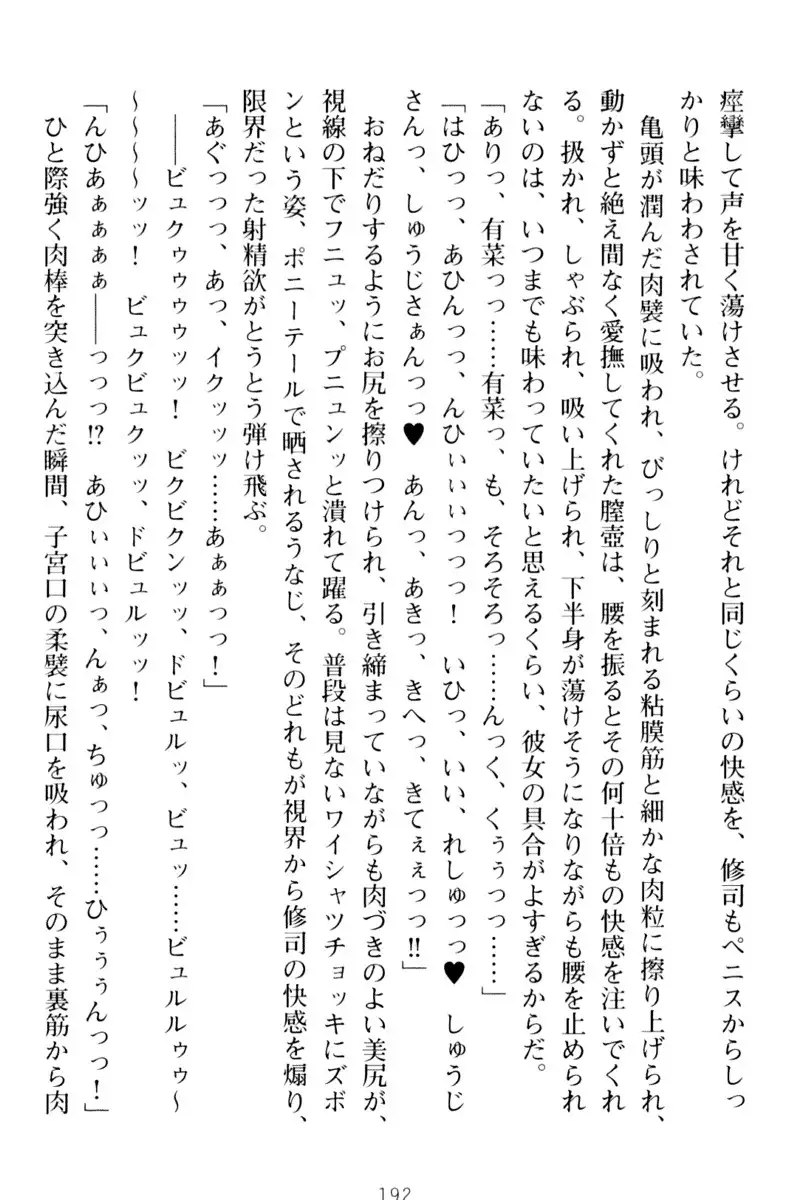 痙攣して声を甘く蕩けさせる。けれどそれと同じくらいの快感を、修司もペニスからしっ
かりと味わわされていた。
　亀頭が潤んだ肉襞に吸われ、びっしりと刻まれる粘膜筋と細かな肉粒に擦り上げられ、
動かずと絶え間なく愛撫してくれた膣壺は、腰を振るとその何十倍もの快感を注いでくれ
る。扱かれ、しゃぶられ、吸い上げられ、下半身が蕩けそうになりながらも腰を止められ
ないのは、いつまでも味わっていたいと思えるくらい、彼女の具合がよすぎるからだ。
「ありっ、有菜っっ……有菜っ、も、そろそろっ……んっく、くぅぅっっ……」
「はひっっ、あひんっっ、んひぃぃぃっっっ！　いひっ、いい、れしゅっっ♥　しゅうじ
さんっ、しゅうじさぁんっっ♥　あんっ、あきっ、きへっ、きてぇぇっっ!!」
　おねだりするようにお尻を擦りつけられ、引き締まっていながらも肉づきのよい美尻が、
視線の下でフニュッ、プニュンッと潰れて躍る。普段は見ないワイシャツチョッキにズボ
ンという姿、ポニーテールで晒されるうなじ、そのどれもが視界から修司の快感を煽り、
限界だった射精欲がとうとう弾け飛ぶ。
「あぐっっっ、あっ、イクッッッ……あぁぁっっ！」
　――ビュクゥゥゥゥッッ！　ビクビクンッッ、ドビュルッ、ビュッ……ビュルルゥゥ～
～～～～ッッ！　ビュクビュクッッ、ドビュルッッ！
「んひあぁぁぁぁ――っっっ!?　あひぃぃぃっ、んぁっ、ちゅっっ……ひぅぅぅんっっ！」
　ひと際強く肉棒を突き込んだ瞬間、子宮口の柔襞に尿口を吸われ、そのまま裏筋から肉
192